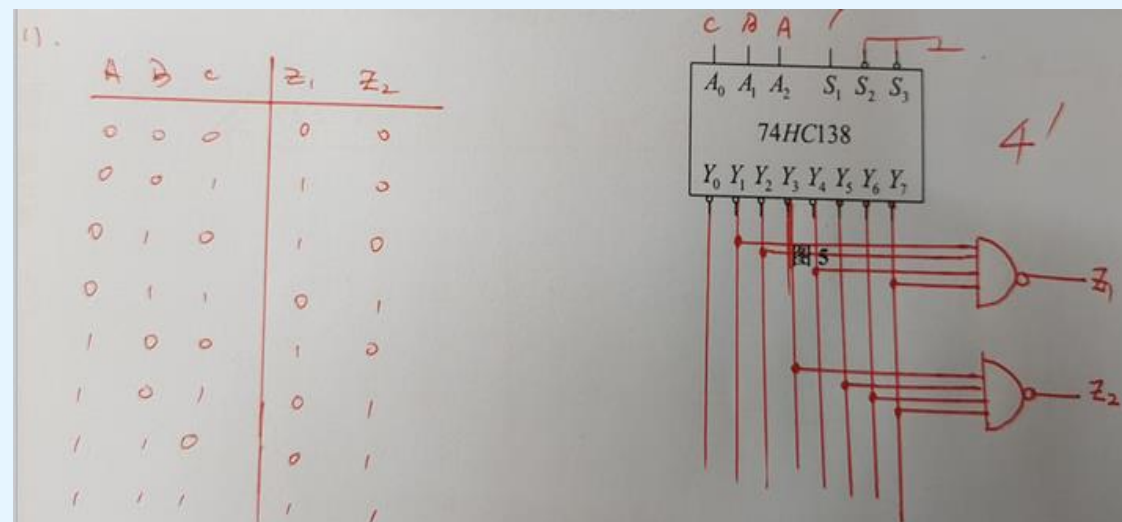 1).
A B C Z₁ Z₂
0 0 0 0 0
0 0 1 1 0
0 1 0 1 0
0 1 1 0 1
1 0 0 1 0
1 0 1 0 1
1 1 0 0 1
1 1 1 1 1
C B A 1
A₀ A₁ A₂ S₁ S₂ S₃
74HC138
4'
Y₀ Y₁ Y₂ Y₃ Y₄ Y₅ Y₆ Y₇
图 5
Z₁
Z₂